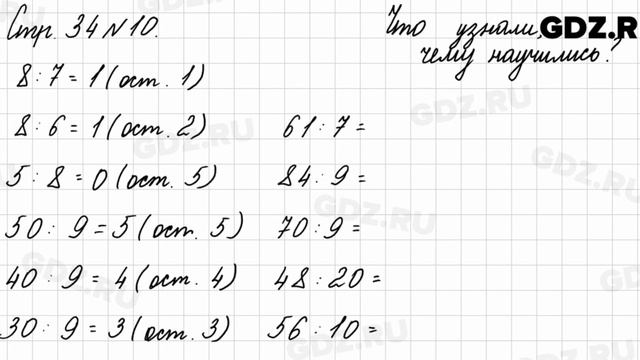 Стр. 34 № 10.
Что узнали,
чему научились?
GDZ.RU
8 : 7 = 1 (ост. 1)
8 : 6 = 1 (ост. 2)
5 : 8 = 0 (ост. 5)
50 : 9 = 5 (ост. 5)
40 : 9 = 4 (ост. 4)
30 : 9 = 3 (ост. 3)
61 : 7 =
84 : 9 =
70 : 9 =
48 : 20 =
56 : 10 =
GDZ.RU
GDZ.RU
GDZ.RU
GDZ.RU
GDZ.RU
GDZ.RU